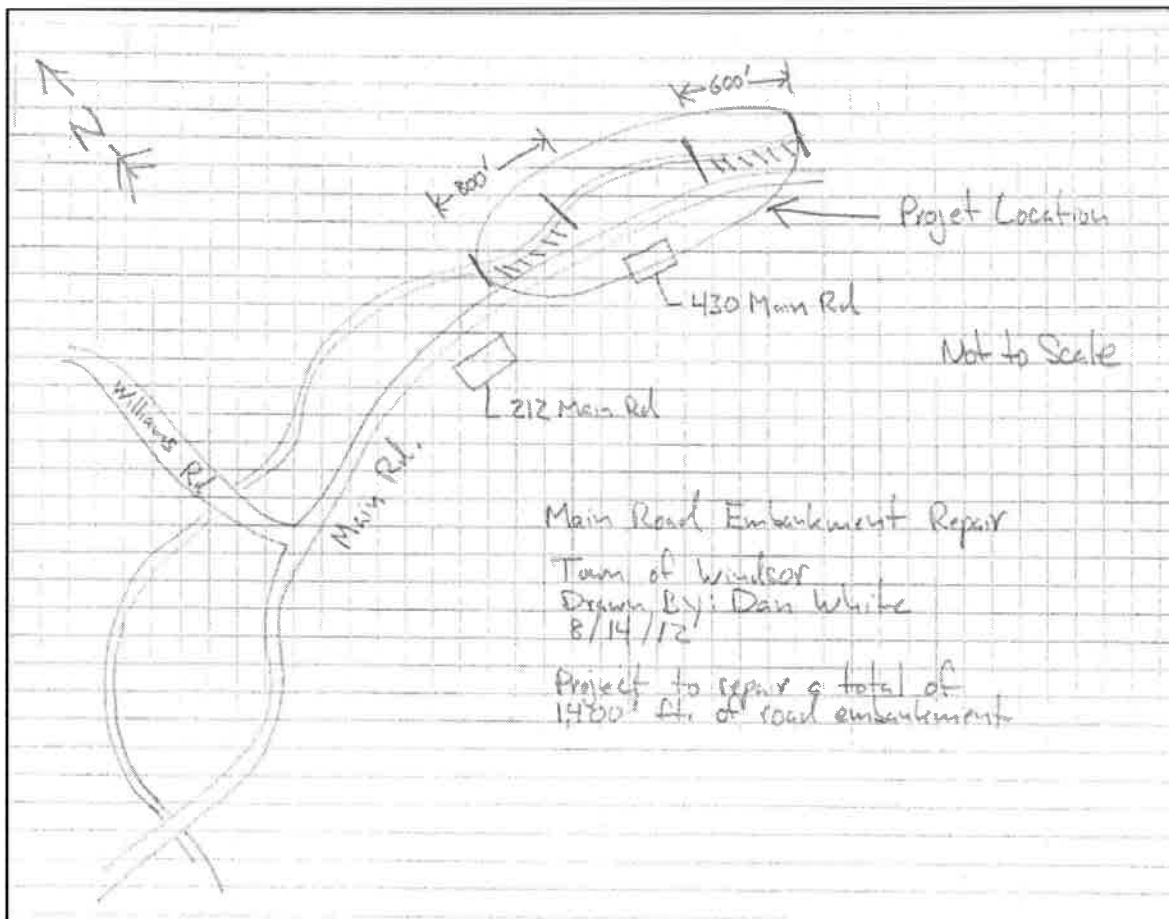 N
600'
800'
Projet Location
430 Main Rd
Not to Scale
212 Main Rd
Williams Rd
Main Rd.
Main Road Embankment Repair
Town of Windsor
Drawn By: Dan White
8/14/12
Project to repair a total of
1,400' ft. of road embankment